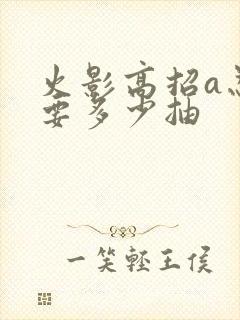 火影高招a忍
要多少抽
一笑轻王侯